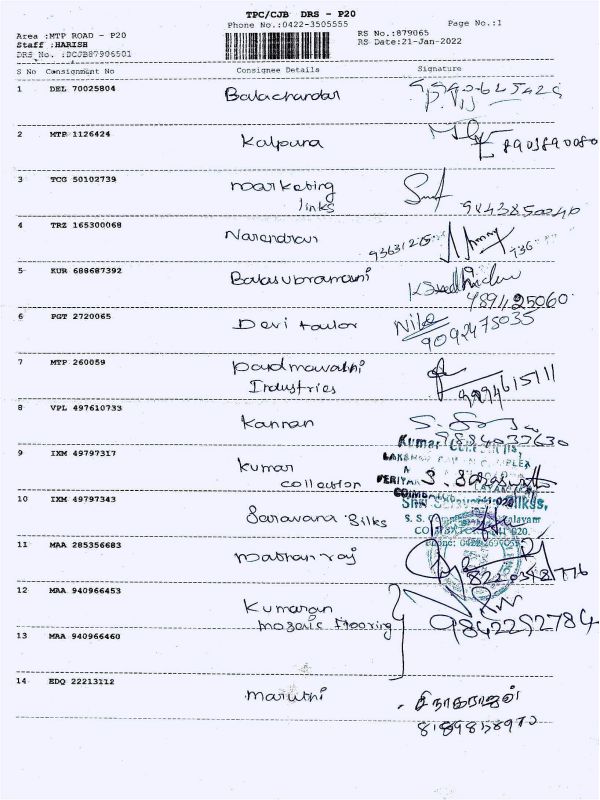 TPC/CJB DRS - P20
Phone No.:0422-3505555
Page No.:1
Area :MTP ROAD - P20
Staff :HARISH
DRS No. :DCJB87906501
RS No.:879065
RS Date:21-Jan-2022
S No Consignment No Consignee Details Signature
1 DEL 70025804 Balachandar
2 MTP 1126424 Kalpana 8903890080
3 TCG 50102739 marketing
links 9843850240
4 TRZ 165300068 Narendran
5 KUR 688687392 Balasubramani
6 PGT 2720065 Devi tailor
9092475035
7 MTP 260059 padmavathi
Industries
8 VPL 497610733 Kannan
9884033630
9 IXM 49797317 kumar
collection
10 IXM 49797343 Saravana Silks
11 MAA 285356683 Mathan raj
12 MAA 940966453 Kumaran
mozaic Flooring
9842252784
13 MAA 940966460
14 EDQ 22213112 maruthi
சிநாகராஜன்